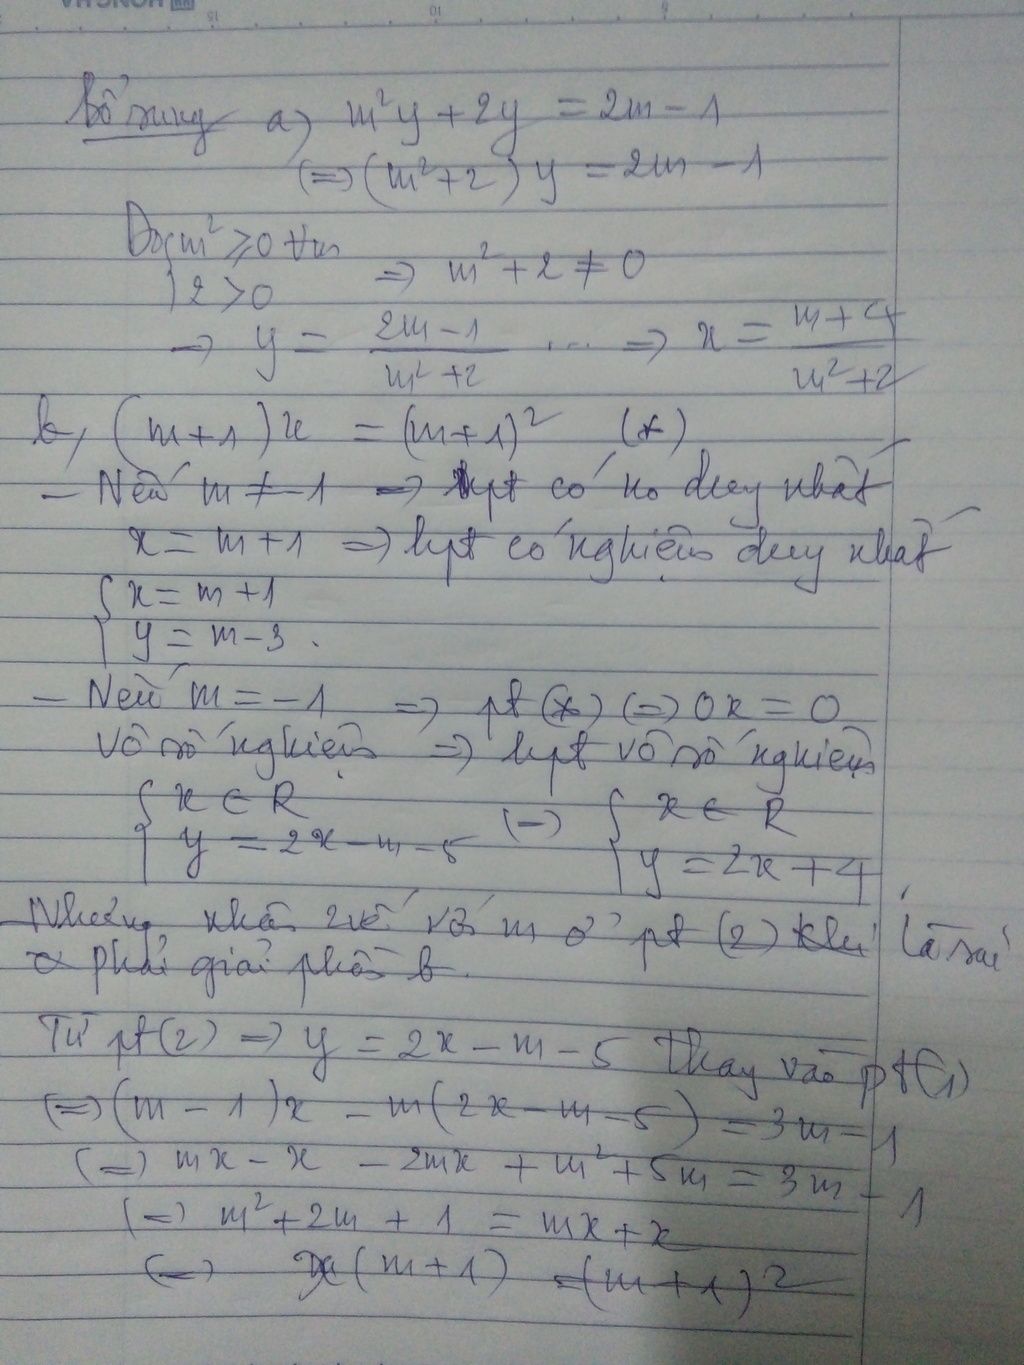 Bổ sung a) m²y + 2y = 2m - 1
(=) (m² + 2) y = 2m - 1
Do { m² ≥ 0 ∀m
2 > 0 => m² + 2 ≠ 0
=> y = (2m - 1)/(m² + 2) ... => x = (m + 4)/(m² + 2)
b, (m + 1)x = (m + 1)² (*)
- Nếu m ≠ -1 => hpt có no duy nhất
x = m + 1 => hpt có nghiệm duy nhất
{ x = m + 1
y = m - 3 .
- Nếu m = -1 => pt (*) (=) 0x = 0
vô số nghiệm => hpt vô số nghiệm
{ x ∈ R (=) { x ∈ R
y = 2x - m - 5 y = 2x + 4
Nhưng nhân 2 vế với m ở pt (2) là sai
phải giải phần b.
Từ pt(2) => y = 2x - m - 5 Thay vào pt(1)
(=) (m - 1)x - m(2x - m - 5) = 3m - 1
(=) mx - x - 2mx + m² + 5m = 3m - 1
(=) m² + 2m + 1 = mx + x
(=) x(m + 1) = (m + 1)²